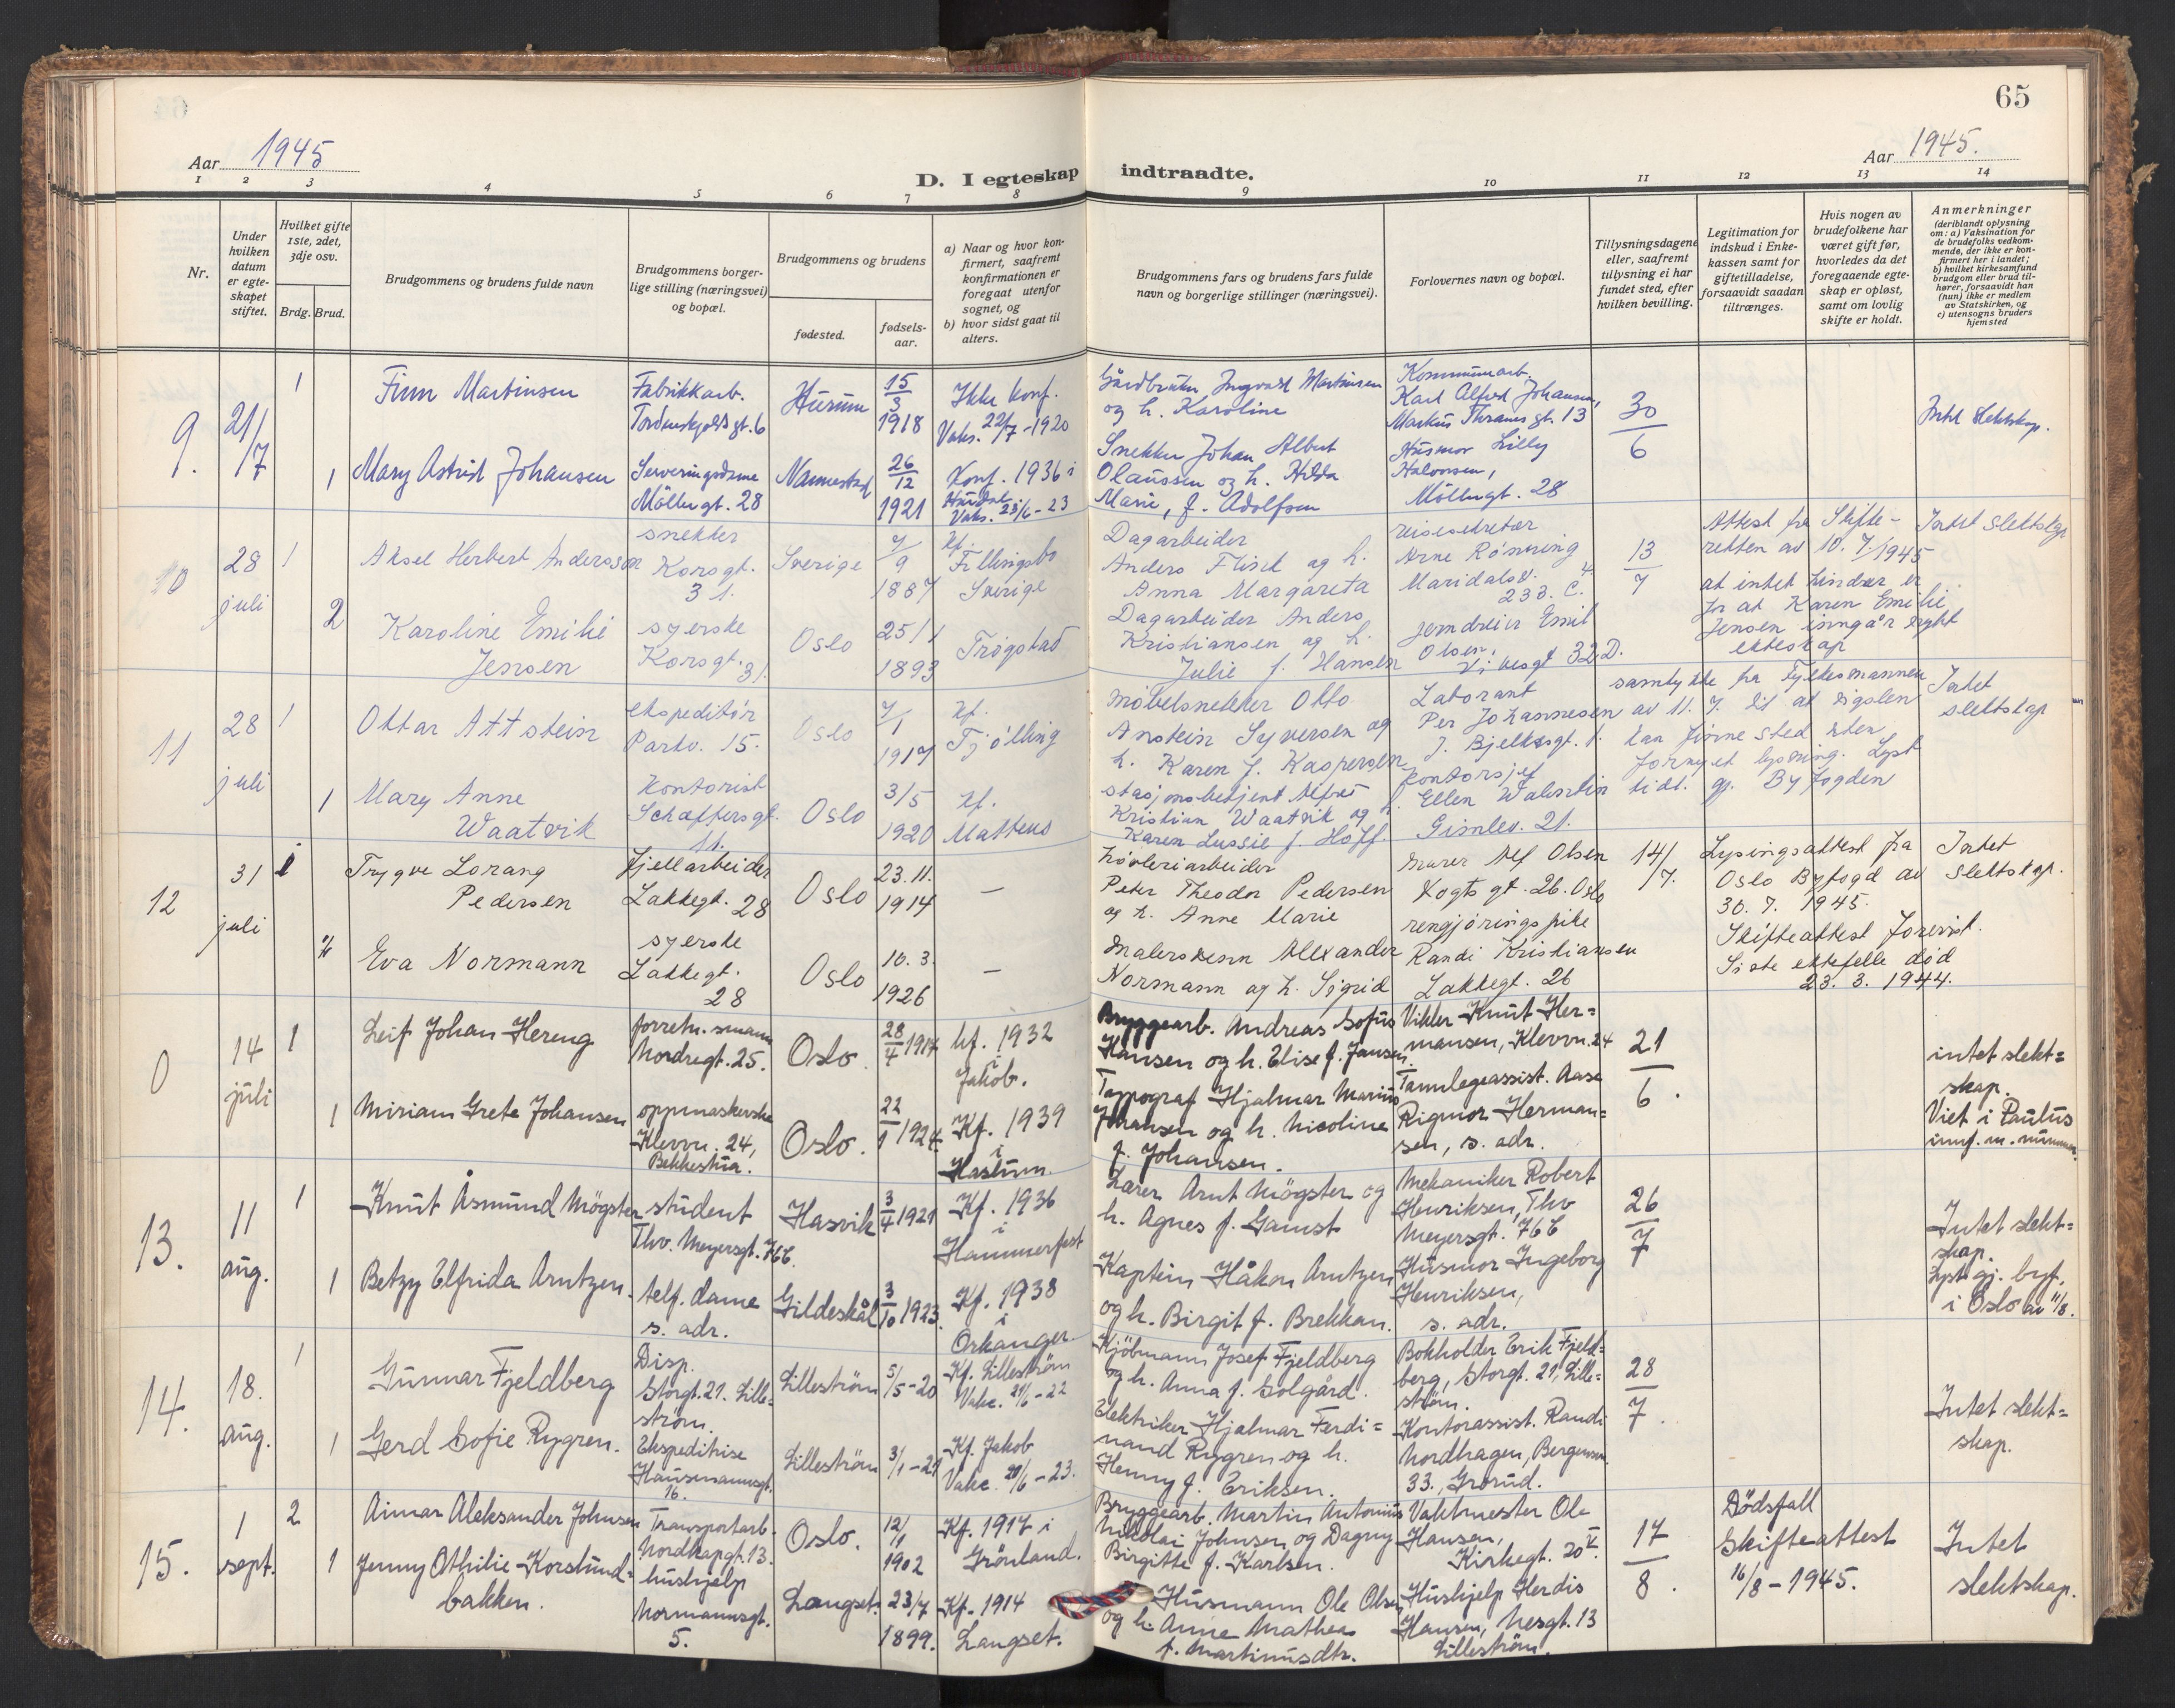 65
Aar 1945
Aar 1945.
D. I egteskap indtraadte.
1 2 3 4 5 6 7 8 9 10 11 12 13 14
Nr.
Under hvilken datum er egte- skapet stiftet.
Hvilket gifte 1ste, 2det, 3dje osv.
Brdg. Brud.
Brudgommens og brudens fulde navn
Brudgommens borger- lige stilling (næringsvei) og bopæl.
Brudgommens og brudens
fødested.
fødsels- aar.
a) Naar og hvor kon- firmert, saafremt konfirmationen er foregaat utenfor sognet, og
b) hvor sidst gaat til alters.
Brudgommens fars og brudens fars fulde navn og borgerlige stillinger (næringsvei).
Forlovernes navn og bopæl.
Tillysningsdagene eller, saafremt tillysning ei har fundet sted, efter hvilken bevilling.
Legitimation for indskud i Enke- kassen samt for giftetilladelse, forsaavidt saadan tiltrænges.
Hvis nogen av brudefolkene har været gift før, hvorledes da det foregaaende egte- skap er opløst, samt om lovlig skifte er holdt.
Anmerkninger
(deriblandt oplysning om: a) Vaksination for de brudefolks vedkom- mende, der ikke er kon- firmert her i landet; b) hvilket kirkesamfund brudgom eller brud til- hører, forsaavidt han (hun) ikke er medlem av Statskirken, og c) utensogns bruders hjemsted
9. 21/7
1 Finn Martinsen
Fabrikkarb.
Tordenskjoldsgt. 6
Hurum
15/3 1918
Ikke konf.
Vaks. 22/7-1920
Gårdbruker Ingvald Martinsen
og h. Karoline
Kommunearb.
Karl Alfred Johansen,
Markus Thranes gt. 13
30/6
Intet slektskap.
1 Mary Astrid Johansen
Serveringsdame
Möllergt. 28
Nannestad
26/12 1921
Konf. 1936 i
Hurdal
Vaks. 23/6-23
Snekker Johan Albert
Olaussen og h. Hilda
Marie, f. Adolfsen
Husmor Lilly
Halvorsen,
Möllergt. 28
10 28 juli
1 Aksel Herbert Andersson
snekker
Korsgt.
31.
Sverige
7/9 1887
kf.
Fellingsbo
Sverige
Dagarbeider
Anders Flink og h.
Anna Margareta
reisesekretær
Arne Rönning
Maridalsv.
233. C.
13/7
Attest fra Skifte-
retten av 10. 7/1945
at intet hinder er
for at Karen Emilie
Jensen inngår nytt
ekteskap
Intet slektskap
2 Karoline Emilie
Jensen
syerske
Korsgt. 31.
Oslo
25/1 1893
Trøgstad
Dagarbeider Anders
Kristiansen og h.
Julie f. Hansen
jerndreier Emil
Olsen,
Vibesgt 32D.
11 28 juli
1 Ottar Attstein
ekspeditør
Parkv. 15.
Oslo
7/1 1917
kf.
Tjølling
møbelsnekker Otto
Anstein Syversen og
h. Karen f. Kaspersen
Laborant
Per Johannesen
J. Bjelkesgt. 1.
samtykke fra Fylkesmannen
av 11. 7. til at vigslen
kan finne sted uten
fornyet lysning. Lyst
tidl. gj. Byfogden
Intet
slektskap
1 Mary Anne
Waatvik
Kontorist
Schæffersgt.
11.
Oslo
3/5 1920
kf.
Matteus
stasjonsbetjent Alfred
Kristian Waatvik og h.
Karen Lussie f. Hoff.
Kontorsjef
Ellen Walentin
Gimlev. 21.
12 31 juli
1 Trygve Lorang
Pedersen
fjellarbeider
Lakkegt. 28
Oslo
23.11. 1914
—
høvleriarbeider
Peter Theodor Pedersen
og h. Anne Marie
murer Alf Olsen
Vogts gt. 26. Oslo
14/7.
Lysingsattest fra
Oslo Byfogd av
30. 7. 1945.
Skifteattest forevist.
Siste ektefelle død
23. 3. 1944.
Intet
slektskap.
Eva Normann
syerske
Lakkegt.
28
Oslo
10. 3. 1926
—
Malersvenn Alexander
Normann og h. Sigrid
rengjøringspike
Randi Kristiansen
Lakkegt. 26
0 14 juli
1 Leif Johan Hereng
forretn.smann
Nordregt. 25.
Oslo.
28/4 1917
kf. 1932
i
Jakob.
Bryggearb. Andreas Sofus
Hansen og h. Elise f. Jansen.
Vikler Knut Her=
mansen, Klevvn. 24
21/6.
intet slekt=
skap.
Viet i Paulus
innf. m. nummer.
1 Miriam Grete Johansen
oppvaskerske
Klevvn. 24,
Bekkestua.
Oslo.
22/1 1924
Kf. 1939
i
Haslum.
Typograf Hjalmar Marius
Johansen og h. Nicoline
f. Johansen.
Tannlegeassist. Aase
Rigmor Herman=
sen, s. adr.
13. 11 aug.
1 Knut Åsmund Mögster
student
Thv. Meyersgt. 76 C.
Hasvik
3/4 1921
Kf. 1936
i
Hammerfest
Lærer Arnt Mögster og
h. Agnes f. Gamst
Mekaniker Robert
Henriksen, Thv
Meyersgt. 76 C
26/7
Intet slekt=
skap.
Lyst gj. byf.
i Oslo av 11/8.
1 Betzy Elfrida Arntzen.
telf. dame
s. adr.
Gildeskål
3/10 1923.
Kf. 1938
i
Orkanger.
Kaptein Håkon Arntzen
og h. Birgit f. Brekkan.
Husmor Ingeborg
Henriksen,
s. adr.
14. 18. aug.
1 Gunnar Fjeldberg
Disp.
Storgt. 21. Lille=
ström.
Lilleström
5/5-20
Kf. Lilleström
Vakc. 21/6-22
Kjöbmann Josef Fjeldberg
og h. Anna f. Solgård.
Bokholder Erik Fjeld=
berg, Storgt. 21, Lille=
ström.
28/7.
Intet slekt=
skap.
1 Gerd Sofie Rygren.
Ekspeditrise
Hausmannsgt.
16.
Lilleström
3/1-21
Kf. Jakob
Vakc. 20/6-23.
Elektriker Hjalmar Ferdi=
nand Rygren og h.
Henny f. Eriksen.
Kontorassist. Randi
Nordhagen, Bergensvn.
33., Grorud.
15. 1 sept.
2 Aimar Aleksander Johnsen
Transportarb.
Nordkapgt. 13.
Oslo.
12/11 1902
Kf. 1917 i
Grönland.
Bryggearb. Martin Antonius
Nikolai Johnsen og Dagny
Birgitte f. Karlsen.
Vaktmester Ole
Hansen,
Kirkegt. 20 V.
17/8.
Dödsfall
Skifteattest
16/8-1945.
Intet
slektskap.
1 Jenny Othilie Korslund=
bakken.
hushjelp
Normannsgt.
5.
Langset.
23/7 1899.
Kf. 1914
Langset.
Husmann Ole Olsen
og h. Anne Mathea
f. Martinusdtr.
Hushjelp Herdis
Hansen, Nesgt. 13
Lilleström.